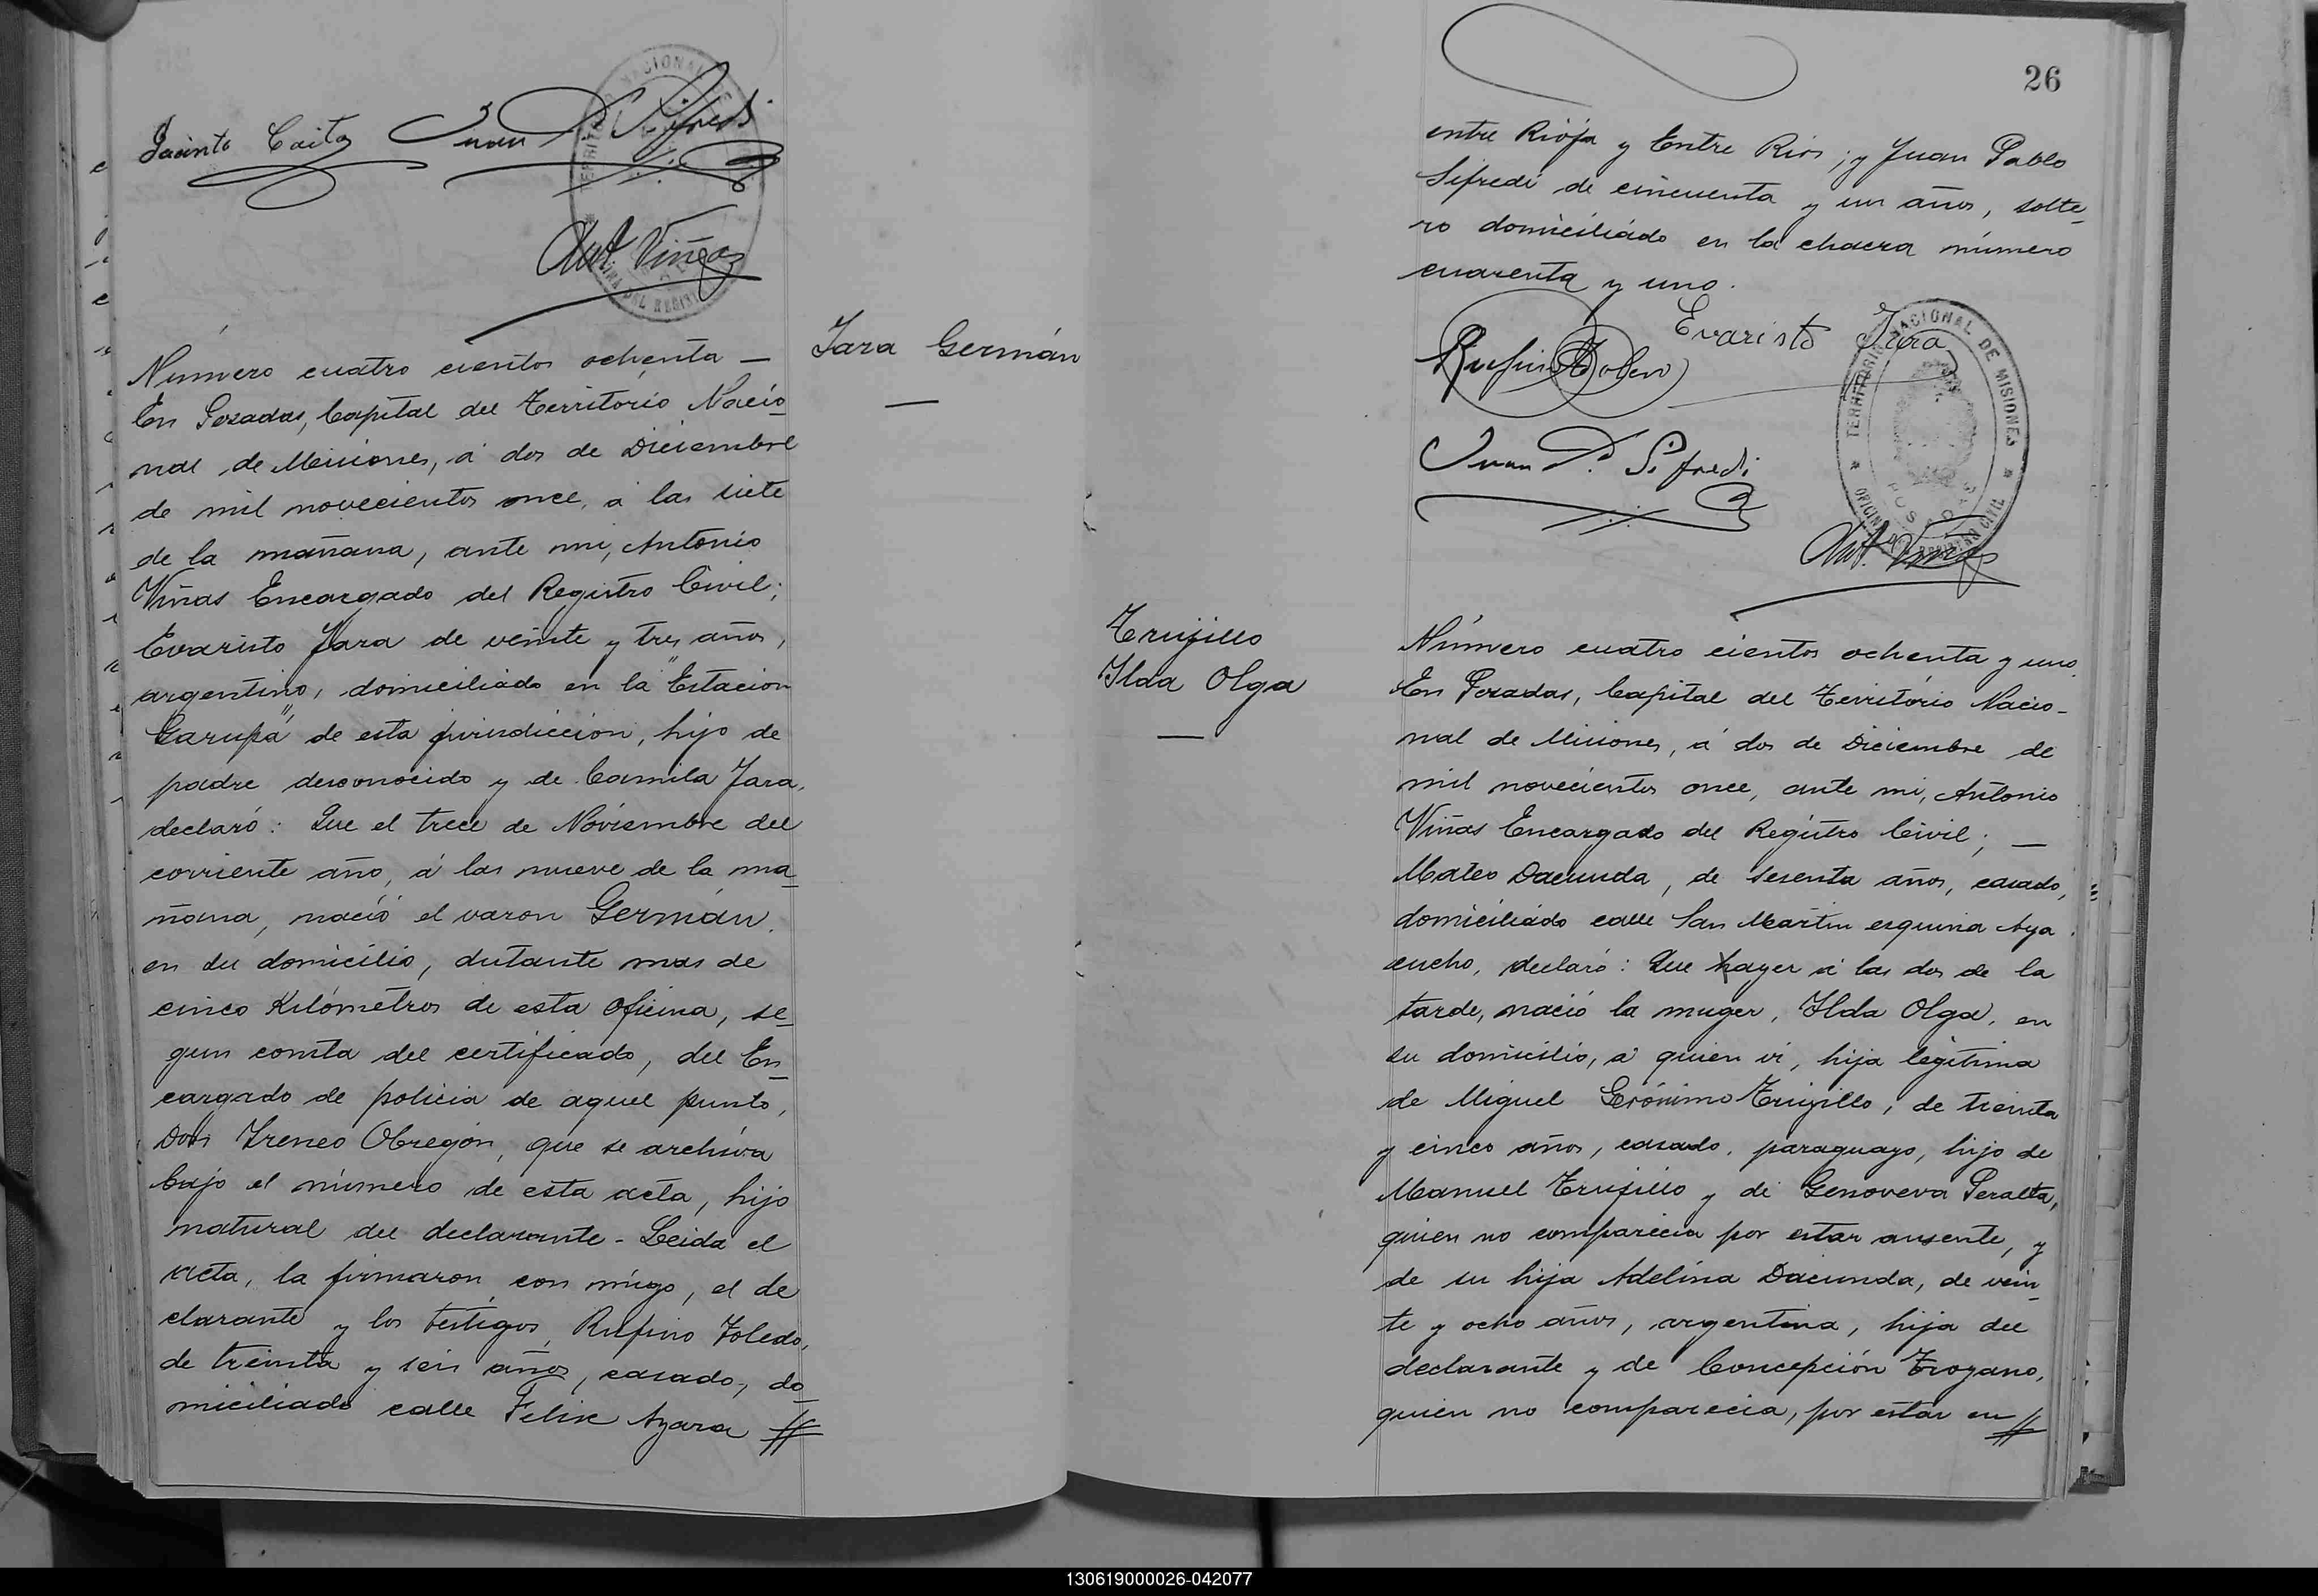 Jacinto Juan P. Sifredi
Ant. Viñas
Número cuatro cientos ochenta —
En Posadas, Capital del Territorio Nacio-
nal de Misiones, á dos de Diciembre
de mil novecientos once, á las siete
de la mañana, ante mi, Antonio
Viñas Encargado del Registro Civil;
Evaristo Jara de veinte y tres años,
argentino, domiciliado en la "Estacion
Garupá" de esta jurisdiccion, hijo de
padre desconocido y de Camila Jara,
declaró: Que el trece de Noviembre del
corriente año, á las nueve de la ma-
ñana, nació el varon Germán.
en su domicilio, distante mas de
cinco Kilómetros de esta oficina, se-
gun consta del certificado, del En-
cargado de policia de aquel punto,
Don Ireneo Obregón, que se archiva
bajo el número de esta acta, hijo
natural del declarante - Leida el
acta, la firmaron, con migo, el de
clarante y los testigos, Rufino Toledo,
de treinta y seis años, casado, do-
miciliado calle Felix Azara //
Jara Germán
—
26
entre Rioja y Entre Rios; y Juan Pablo
Sifredi de cincuenta y un años, solte-
ro domiciliado en la chacra número
cuarenta y uno.
Evaristo Jara
Rufino Toledo
Juan P. Sifredi
TERRITORIO NACIONAL DE MISIONES
OFICINA DEL REGISTRO CIVIL
POSADAS
Ant. Viñas
Trujillo
Ilda Olga
—
Número cuatro cientos ochenta y uno.
En Posadas, Capital del Territorio Nacio-
nal de Misiones, á dos de Diciembre de
mil novecientos once, ante mi, Antonio
Viñas Encargado del Registro Civil; —
Mateo Dacunda, de sesenta años, casado,
domiciliado calle San Martin esquina Aya
cucho, declaró: Que hayer á las dos de la
tarde, nació la muger, Ilda Olga, en
su domicilio, á quien vi, hija legitima
de Miguel Gerónimo Trujillo, de treinta
y cinco años, casado, paraguayo, hijo de
Manuel Trujillo y de Genoveva Peralta,
quien no comparecia por estar ausente, y
de su hija Adelina Dacunda, de vein-
te y ocho años, argentina, hija del
declarante y de Concepción Troyano,
quien no comparecia, por estar en //
130619000026-042077